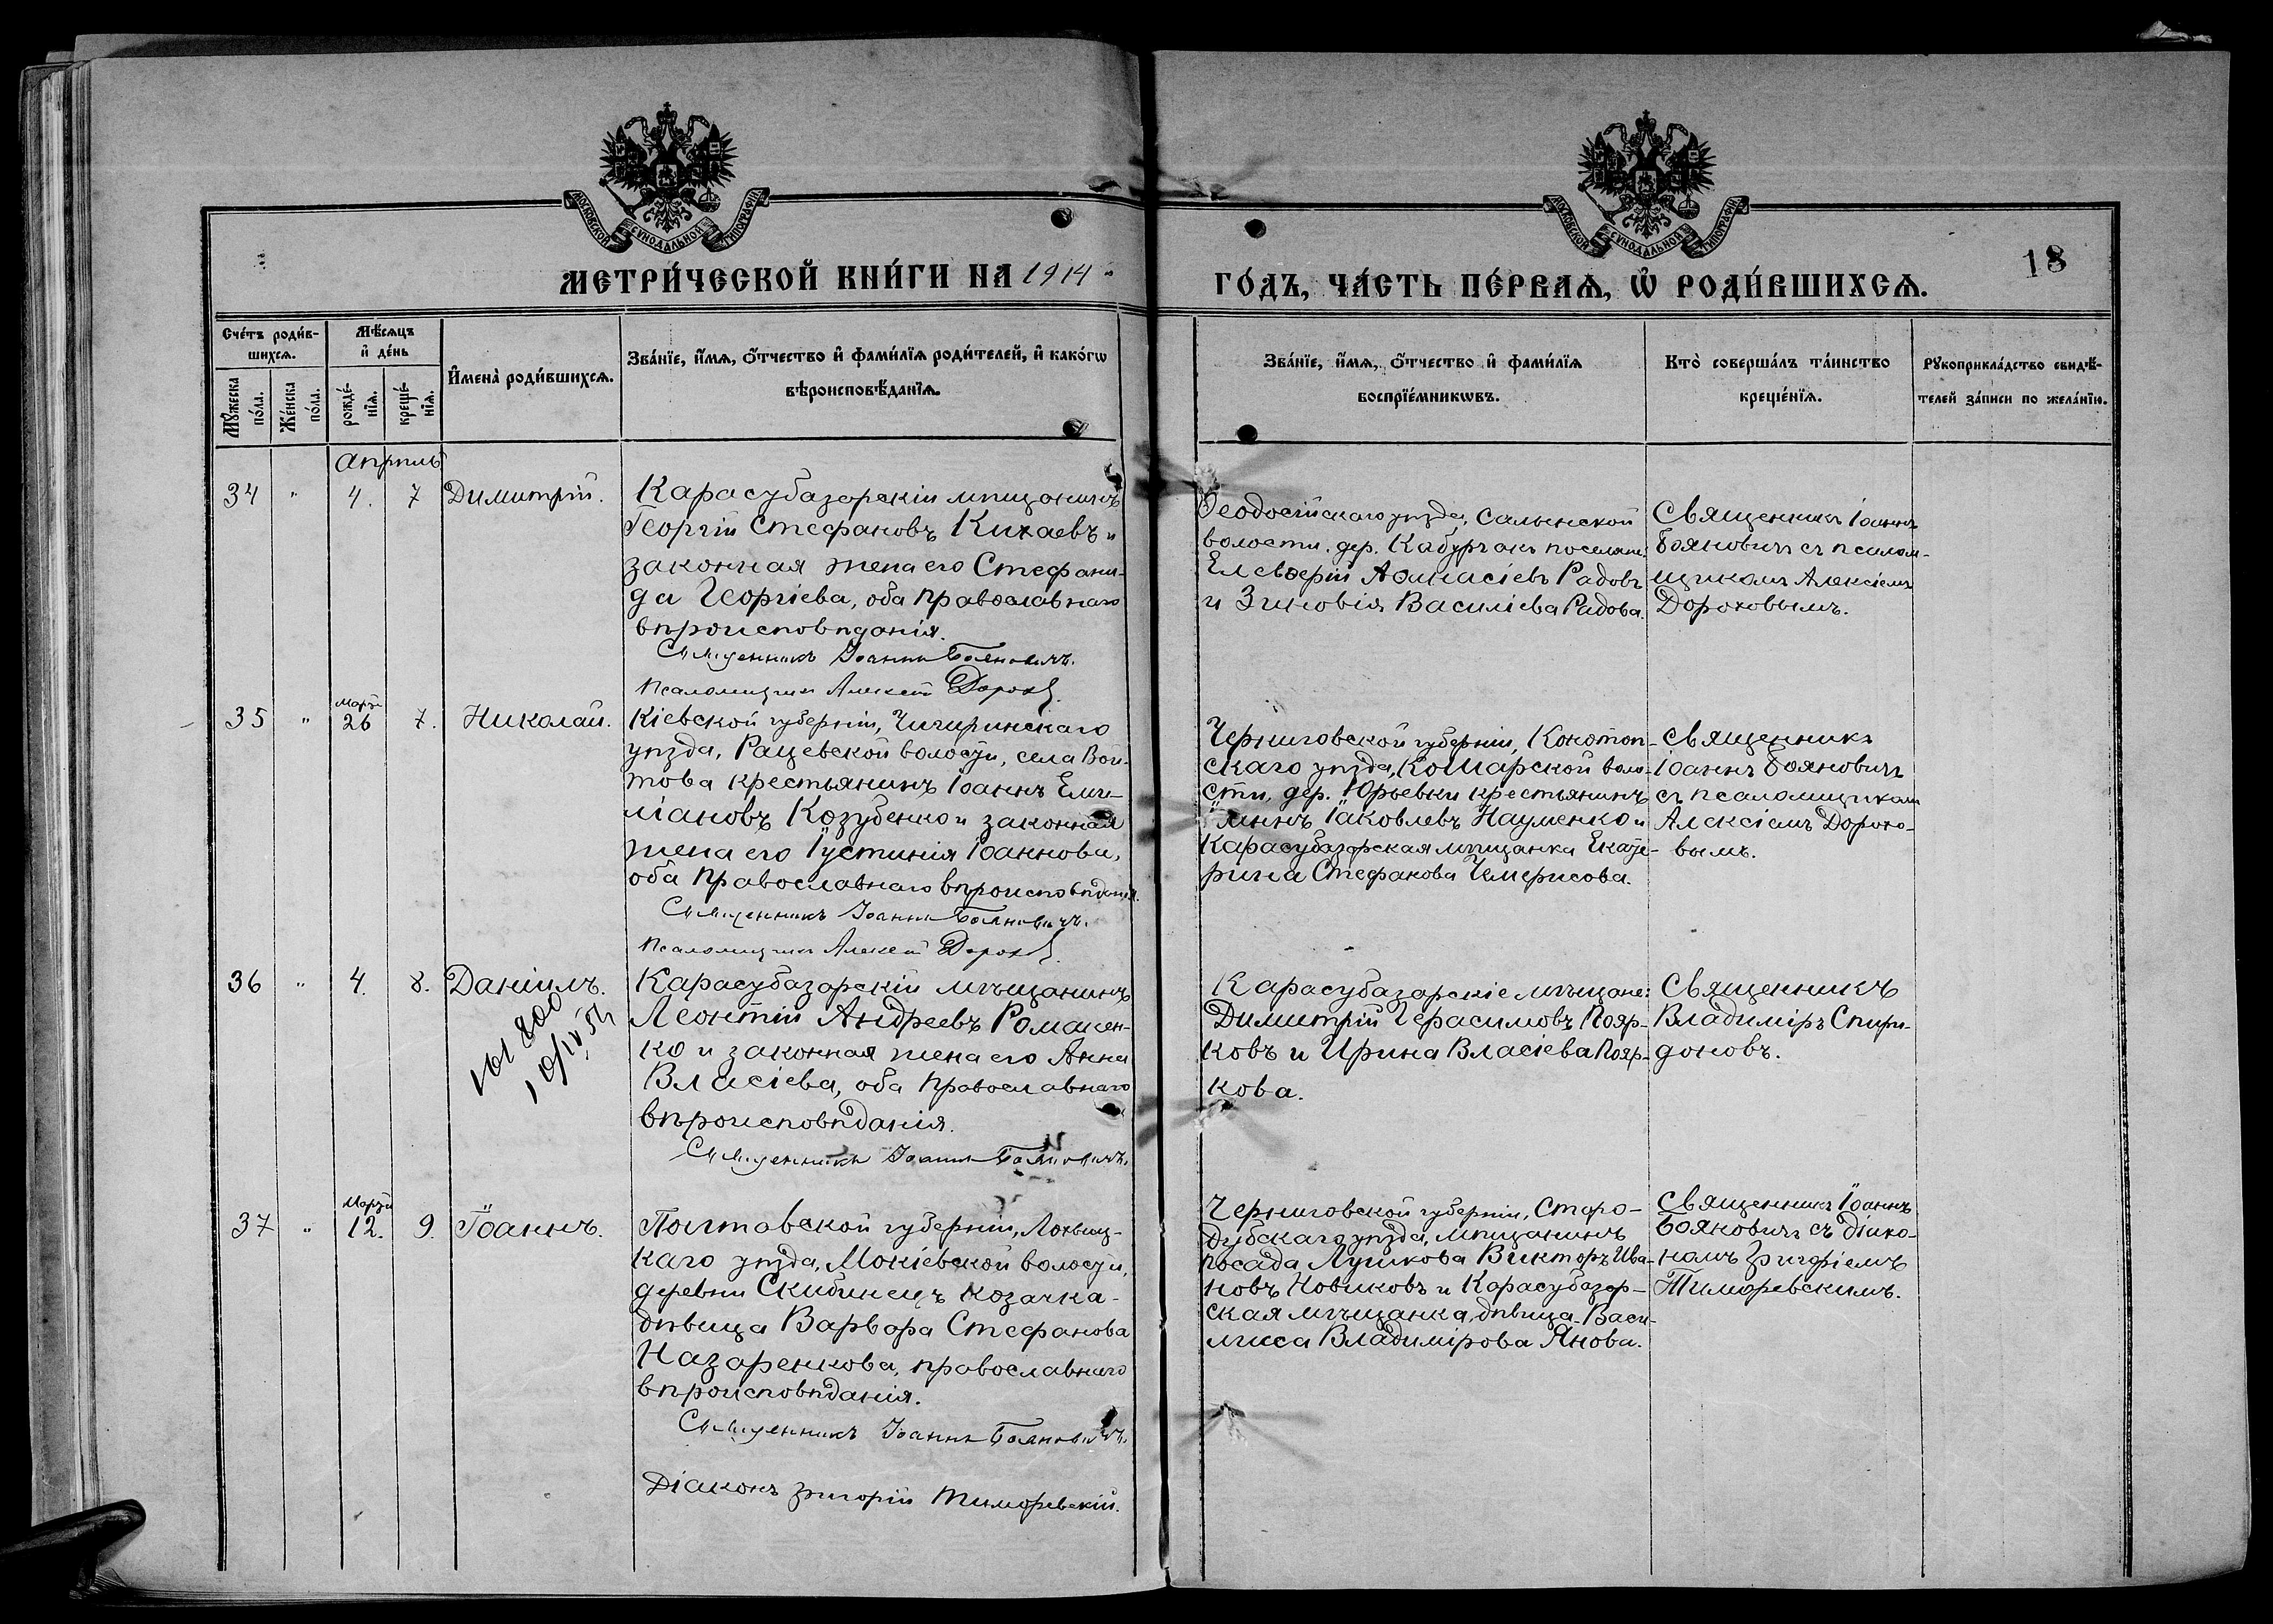 МОСКОВСКОЙ СѴНОДАЛЬНОЙ ТИПОГРАФІИ
МОСКОВСКОЙ СѴНОДАЛЬНОЙ ТИПОГРАФІИ
МЕТРИ́ЧЕСКОЙ КНИ́ГИ НА 1914
ГО́ДЪ, ЧА́СТЬ ПЕ́РВАѦ, Ѽ РОДИ́ВШИХСѦ.
18
Сче́тъ роди́в-
шихсѧ.
Мꙋ́жеска по́ла.
Же́нска по́ла.
Мѣ́сѧцъ
и҆ де́нь
рожде́-
нїѧ.
креще́-
нїѧ.
И҆мена̀ роди́вшихсѧ.
Зва́нїе, и҆́мѧ, ѻ҆́тчество и҆ фами́лїѧ роди́телей, и҆ како́гѡ
вѣроисповѣ́данїѧ.
Зва́нїе, и҆́мѧ, ѻ҆́тчество и҆ фами́лїѧ
воспрїе́мникѡвъ.
Кто̀ соверша́лъ та́инство
креще́нїѧ.
Рꙋкоприкла́дство свидѣ́-
телей за́писи по жела́нїю.
Апрѣль
34 " 4. 7 Димитрій.
Карасубазарскій мѣщанинъ
Георгій Стефановъ Кихаевъ и
законная жена его Стефани-
да Георгіева, оба православнаго
вѣроисповѣданія.
Священникъ Іоаннъ Бояновичъ.
Псаломщикъ Алексій Дорох
Феодосійскаго уѣзда, Салынской
волости, дер. Кабурчакъ поселяне:
Елевферій Афанасіевъ Радовъ
и Зиновія Василіева Радова.
Священникъ Іоаннъ
Бояновичъ съ псалом-
щикомъ Алексіемъ
Дороховымъ.
35 " Марта 26 7. Николай.
Кіевской губерніи, Чигиринскаго
уѣзда, Рацевской волости, села Вой-
това крестьянинъ Іоаннъ Еми-
ліановъ Козубенко и законная
жена его Іустинія Іоаннова,
оба православнаго вѣроисповѣданія.
Священникъ Іоаннъ Бояновичъ.
Псаломщикъ Алексій Дорох
Черниговской губерніи, Конотоп-
скаго уѣзда, воло-
сти, дер. Юрьевки крестьянинъ
Іаковлевъ Науменко и
Карасубазарская мѣщанка Екате-
рина Стефанова Чемерисова.
Священникъ
Іоаннъ Бояновичъ
съ псаломщикомъ
Алексіемъ Дорохо-
вымъ.
36 " 4. 8. Даніилъ.
Карасубазарскій мѣщанинъ
Леонтій Андреевъ Романен-
ко и законная жена его Анна
Власіева, оба православнаго
вѣроисповѣданія.
Священникъ Іоаннъ Бояновичъ.
Карасубазарскіе мѣщане:
Димитрій Герасимовъ Пояр-
ковъ и Ирина Власіева Пояр-
кова.
Священникъ
Владиміръ Спири-
доновъ.
37 " Марта 12. 9. Іоаннъ.
Полтавской губерніи, Лохвиц-
каго уѣзда, Мокіевской волости,
деревни Скибинецъ козачка-
дѣвица Варвара Стефанова
Назаренкова, православнаго
вѣроисповѣданія.
Священникъ Іоаннъ Бояновичъ.
Діаконъ Григорій Тиморевскій.
Черниговской губерніи, Старо-
дубскаго уѣзда, мѣщанинъ
посада Лужкова Викторъ Ива-
новъ Новиковъ и Карасубазар-
ская мѣщанка, дѣвица Васи-
лисса Владимірова Янова.
Священникъ Іоаннъ
Бояновичъ съ діако-
номъ Григоріемъ
Тиморевскимъ.